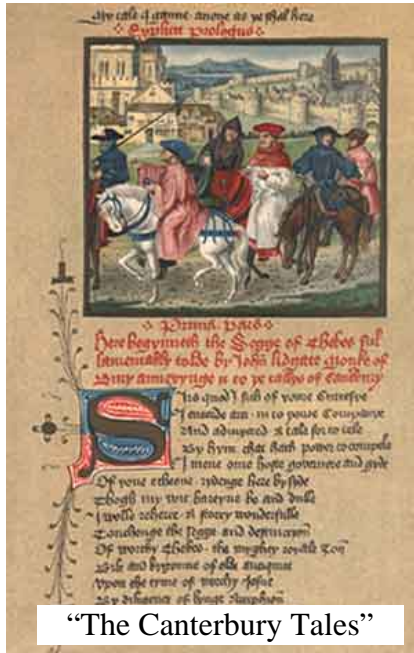 my tale I ganne anone as ye shal here
Explicit prologus
Prima Pars
Here begynneth the Segge of Thebes ful
lamentably tolde by John lidgate Monke of
Bury to ye tallys of
Sirs quod I sith of youre
I entrede am in to youre Companye
And admytted a tale for to telle
By hym that hath power to compelle
I mene oure hoste governere and gyde
Of youe echeone rydenge here by syde
Thogh my wit bareyne be and dulle
I wolle reherce a story wonderfulle
Touchenge the segge and destruccion
Of worthy Thebes the myghty royale Ton
Bilt and begonne of olde
Upon the tyme of worthy Josue
By diligence of kynge
“The Canterbury Tales”